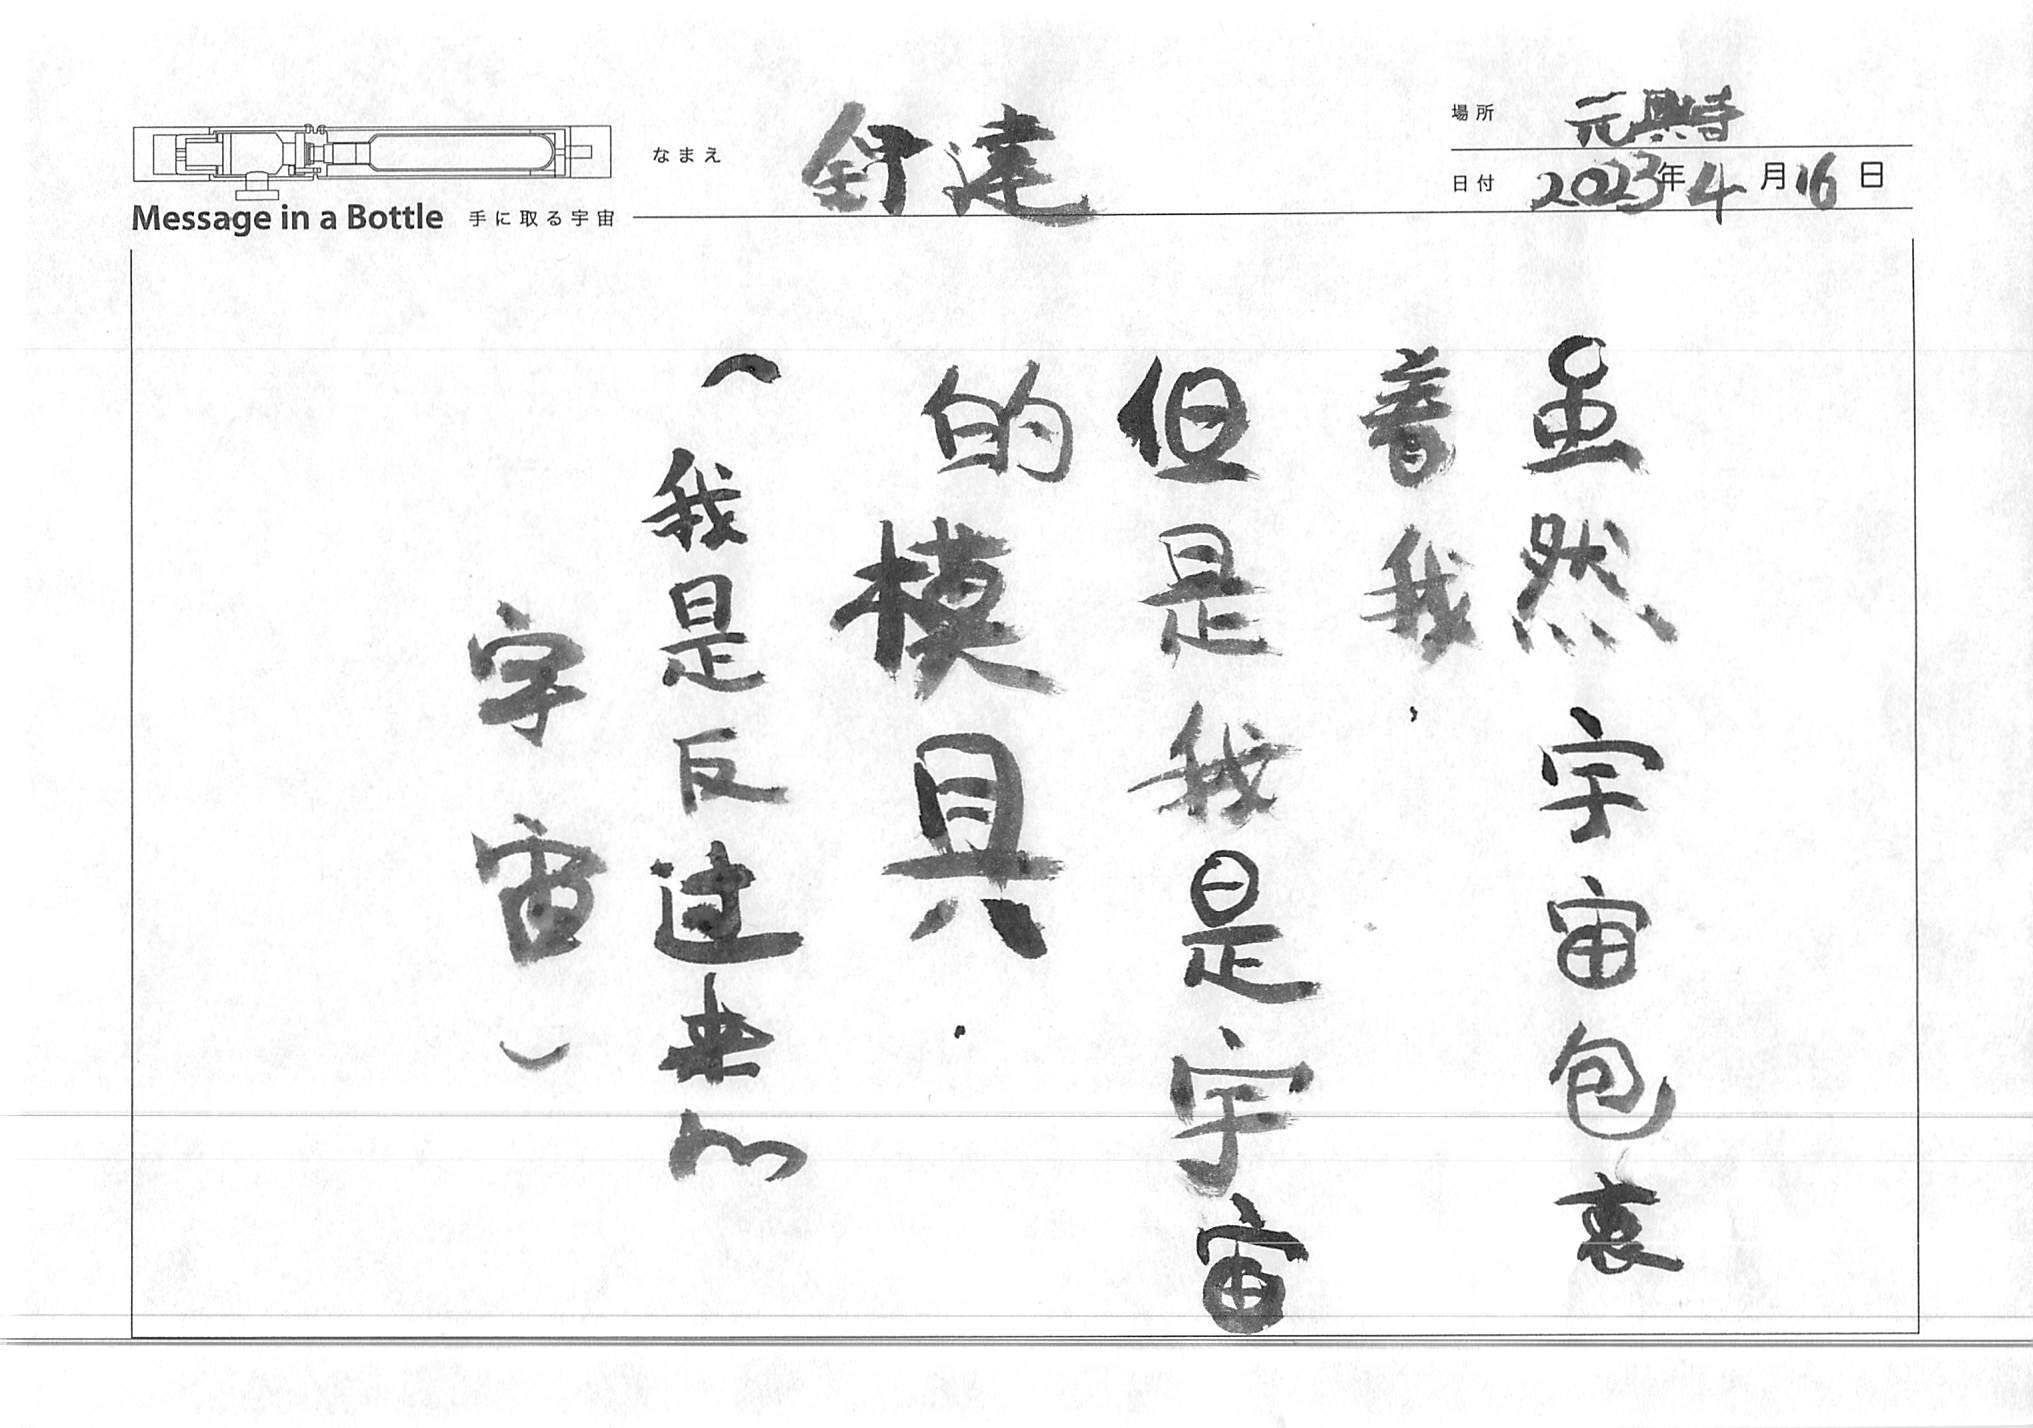 Message in a Bottle 手に取る宇宙
なまえ 舒達
場所 元興寺
日付 2023年4月16日
虽然宇宙包裹
着我,
但是我是宇宙
的模具.
(我是反过来的
宇宙)